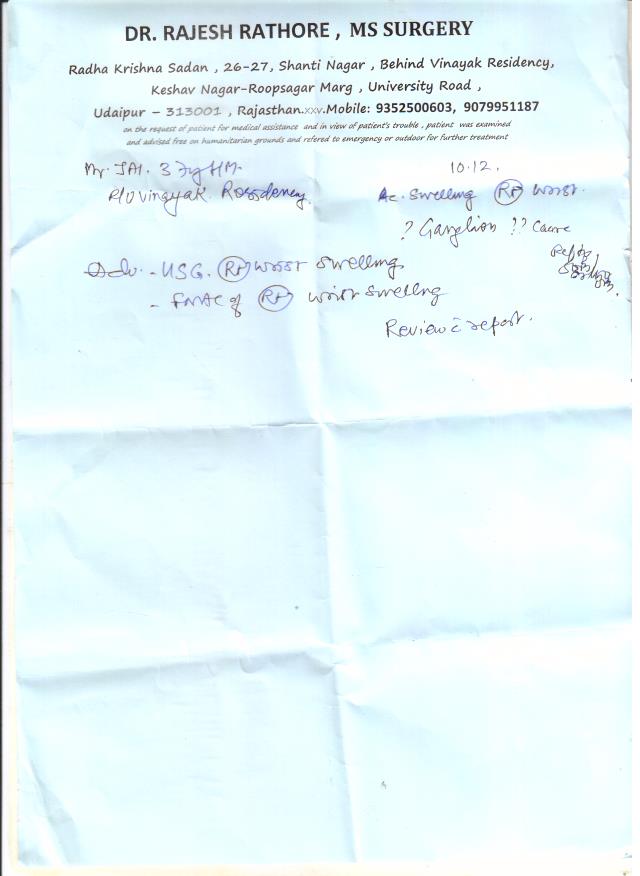 DR. RAJESH RATHORE , MS SURGERY
Radha Krishna Sadan , 26-27, Shanti Nagar , Behind Vinayak Residency,
Keshav Nagar-Roopsagar Marg , University Road ,
Udaipur – 313001 , Rajasthan.xxv.Mobile: 9352500603, 9079951187
on the request of patient for medical assistance and in view of patient's trouble , patient was examined
and advised free on humanitarian grounds and refered to emergency or outdoor for further treatment
Mr. JAI. 37y M.
R/o Vinayak. Ressdency.
10.12.
Ac. Swelling Rt Wrist.
? Ganglion ?? Cause
Adv. - USG. Rt wrist swelling
- FNAC of Rt wrist swellng
Review c̄ report.